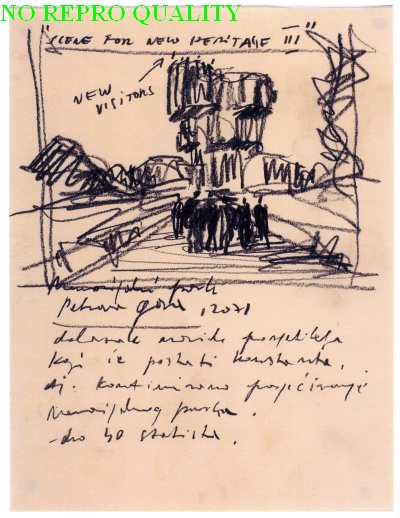 NO REPRO QUALITY
"SCENE FOR NEW HERITAGE III"
NEW
VISITORS
Memorijalni park
Petrova gora, 2071
dolazak novih posjetilaca
koji će postati konstanta,
tj. kontinuirano posjećivanje
Memorijalnog parka.
-do 40 statista.